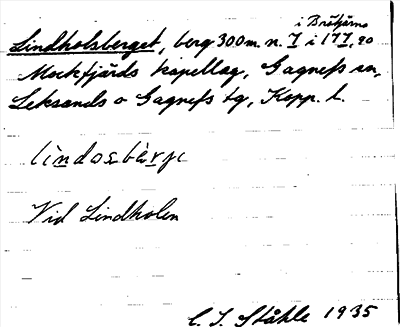 i Bråtjärns
Lindholsberget, berg 300 m. n. 7 i 177, 90
Mockfjärds kapellag, Gagnefs sn,
Leksands o Gagnefs tg, Kopp. l.
lìndosbæ̀rjc
Vid Lindholen
C. I. Ståhle 1935